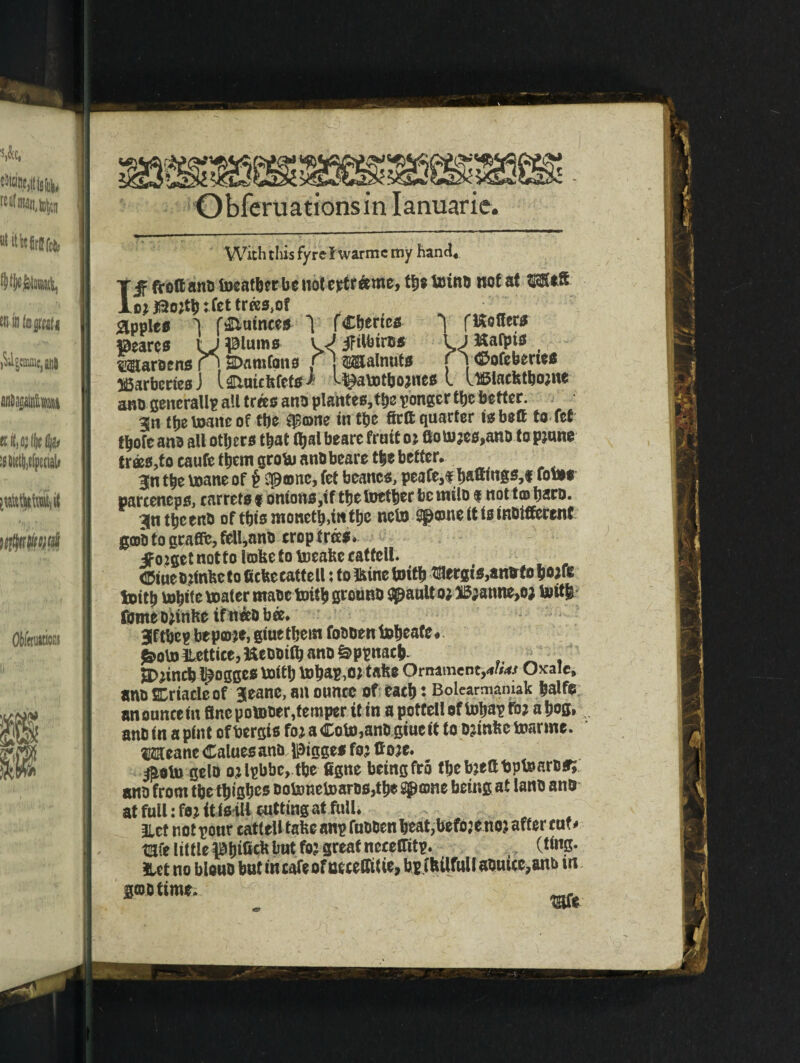 Obseruations in Ianuarie.
With this fyre I warme my hand.
IF frost and weather be not extréme, the wind not at West
or North: set trées, of
Apples Quinces Cheries Rosiers
Peares Plums Filbirds Raspis
Wardens Damsons Walnuts Goseberies
Barberies Quicksets Hawthornes Blackthorne
and generally all trées and plantes, the yonger the better.
In the wane of the Moone in the first quarter is best to set
those and all others that shal beare fruit or flowres, and to prune
trées, to cause them grow and beare the better.
In the wane of ye Moone, set beanes, pease, & hastings, &
parceneps, carrets & onions, if the wether be mild & not too hard.
In the end of this moneth, in the new Moone it is indifferent
good to graffe, fell, and crop trées.
Forget not to looke to weake cattell.
Giue drinke to sicke cattell: to kine with Vergis, and to horse
with white water made with ground Mault or Branne, or with
some drinke if néed bée.
If they be poore, giue them sodden wheate.
Sow Lettice, Reddish and Spynach.
Drinch Hogges with whay, or take Ornament, alias Oxale,
and Triacle of Jeane, an ounce of each: Bolearmaniak halfe
an ounce in fine powder, temper it in a pottell of whay for a hog,
and in a pint of vergis for a Cow, and giue it to drinke warme.
Weane Calues and Pigges for store.
Now geld or lybbe, the signe being frō the brest vpwards,
and from the thighes downewards, the Moone being at land and
at full: for it is ill cutting at full.
Let not your cattell take any sudden heat, before nor after cut-
ting.
Vse little Phisick but for great necessity.
Let no bloud but in case of necessitie, by skilfull aduice, and in
good time.
Vse
s, &c.
Obseruations